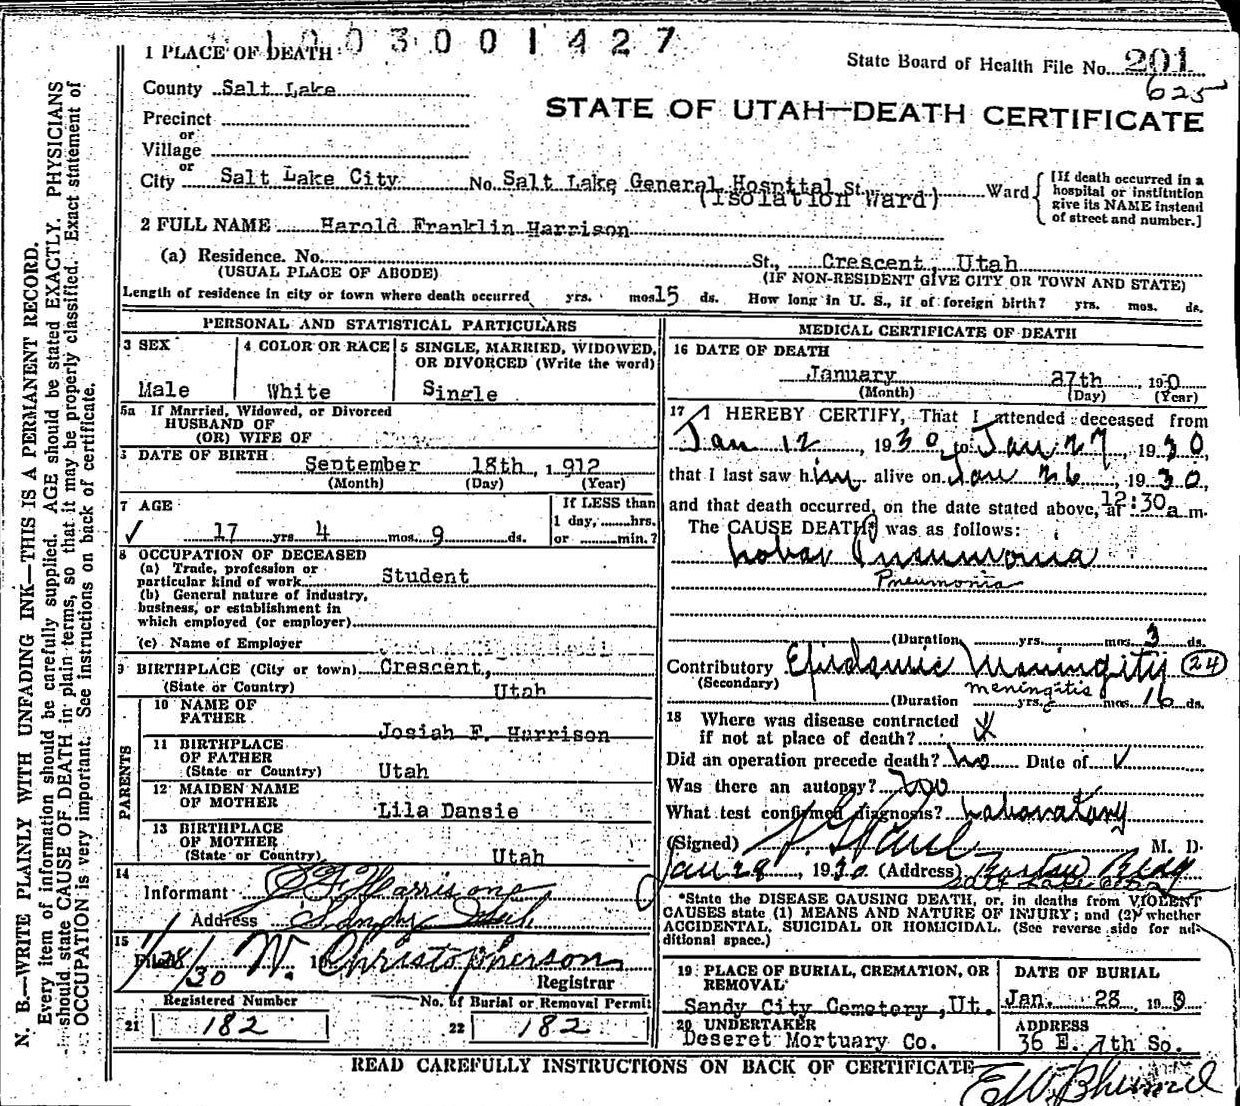 1003001427
1 PLACE OF DEATH
State Board of Health File No. 201
625
County Salt Lake
STATE OF UTAH—DEATH CERTIFICATE
Precinct
or
Village
or
City Salt Lake City No. Salt Lake General Hospital St., Ward
(Isolation Ward)
[If death occurred in a
hospital or institution
give its NAME instead
of street and number.]
2 FULL NAME Harold Franklin Harrison
(a) Residence. No. St., Crescent, Utah
(USUAL PLACE OF ABODE) (IF NON-RESIDENT GIVE CITY OR TOWN AND STATE)
Length of residence in city or town where death occurred yrs. mos. 15 ds. How long in U. S., if of foreign birth? yrs. mos. ds.
PERSONAL AND STATISTICAL PARTICULARS
3 SEX 4 COLOR OR RACE 5 SINGLE, MARRIED, WIDOWED,
OR DIVORCED (Write the word)
Male White Single
5a If Married, Widowed, or Divorced
HUSBAND OF
(OR) WIFE OF
DATE OF BIRTH September 18th, 1912
(Month) (Day) (Year)
7 AGE If LESS than
1 day, hrs.
✓ 17 yrs 4 mos. 9 ds. or min.?
8 OCCUPATION OF DECEASED
(a) Trade, profession or
particular kind of work Student
(b) General nature of industry,
business, or establishment in
which employed (or employer)
(c) Name of Employer
9 BIRTHPLACE (City or town) Crescent,
(State or Country) Utah
PARENTS
10 NAME OF
FATHER Josiah F. Harrison
11 BIRTHPLACE
OF FATHER
(State or Country) Utah
12 MAIDEN NAME
OF MOTHER Lila Dansie
13 BIRTHPLACE
OF MOTHER
(State or Country) Utah
14
Informant Harrison
Address Sandy Utah
15
Filed 1/28/30 W. Christopherson
Registrar
Registered Number No. of Burial or Removal Permit
21 182 22 182
MEDICAL CERTIFICATE OF DEATH
16 DATE OF DEATH
January 27th, 1930
(Month) (Day) (Year)
17 I HEREBY CERTIFY, That I attended deceased from
Jan 12, 1930, to Jan 27, 1930,
that I last saw him alive on Jan 26, 1930,
and that death occurred, on the date stated above, at 12:30 a m.
The CAUSE DEATH was as follows:
Lobar Pneumonia
Pneumonia
(Duration yrs. mos. 3 ds.
Contributory Epidemic Meningitis 24
(Secondary) meningitis
(Duration yrs. mos. 16 ds.
18 Where was disease contracted
if not at place of death?
Did an operation precede death? no Date of ✓
Was there an autopsy? no
What test confirmed diagnosis? Laboratory
(Signed) M. D.
Jan 28, 1930 (Address) Boston Bldg
Salt Lake City
*State the DISEASE CAUSING DEATH, or, in deaths from VIOLENT
CAUSES state (1) MEANS AND NATURE OF INJURY; and (2) whether
ACCIDENTAL, SUICIDAL OR HOMICIDAL. (See reverse side for ad-
ditional space.)
19 PLACE OF BURIAL, CREMATION, OR
REMOVAL DATE OF BURIAL
Sandy City Cemetery, Ut. Jan. 28, 1930
20 UNDERTAKER ADDRESS
Deseret Mortuary Co. 36 E. 7th So.
READ CAREFULLY INSTRUCTIONS ON BACK OF CERTIFICATE
N. B.—WRITE PLAINLY WITH UNFADING INK—THIS IS A PERMANENT RECORD.
Every item of information should be carefully supplied. AGE should be stated EXACTLY. PHYSICIANS
should state CAUSE OF DEATH in plain terms, so that it may be properly classified. Exact statement of
OCCUPATION is very important. See instructions on back of certificate.